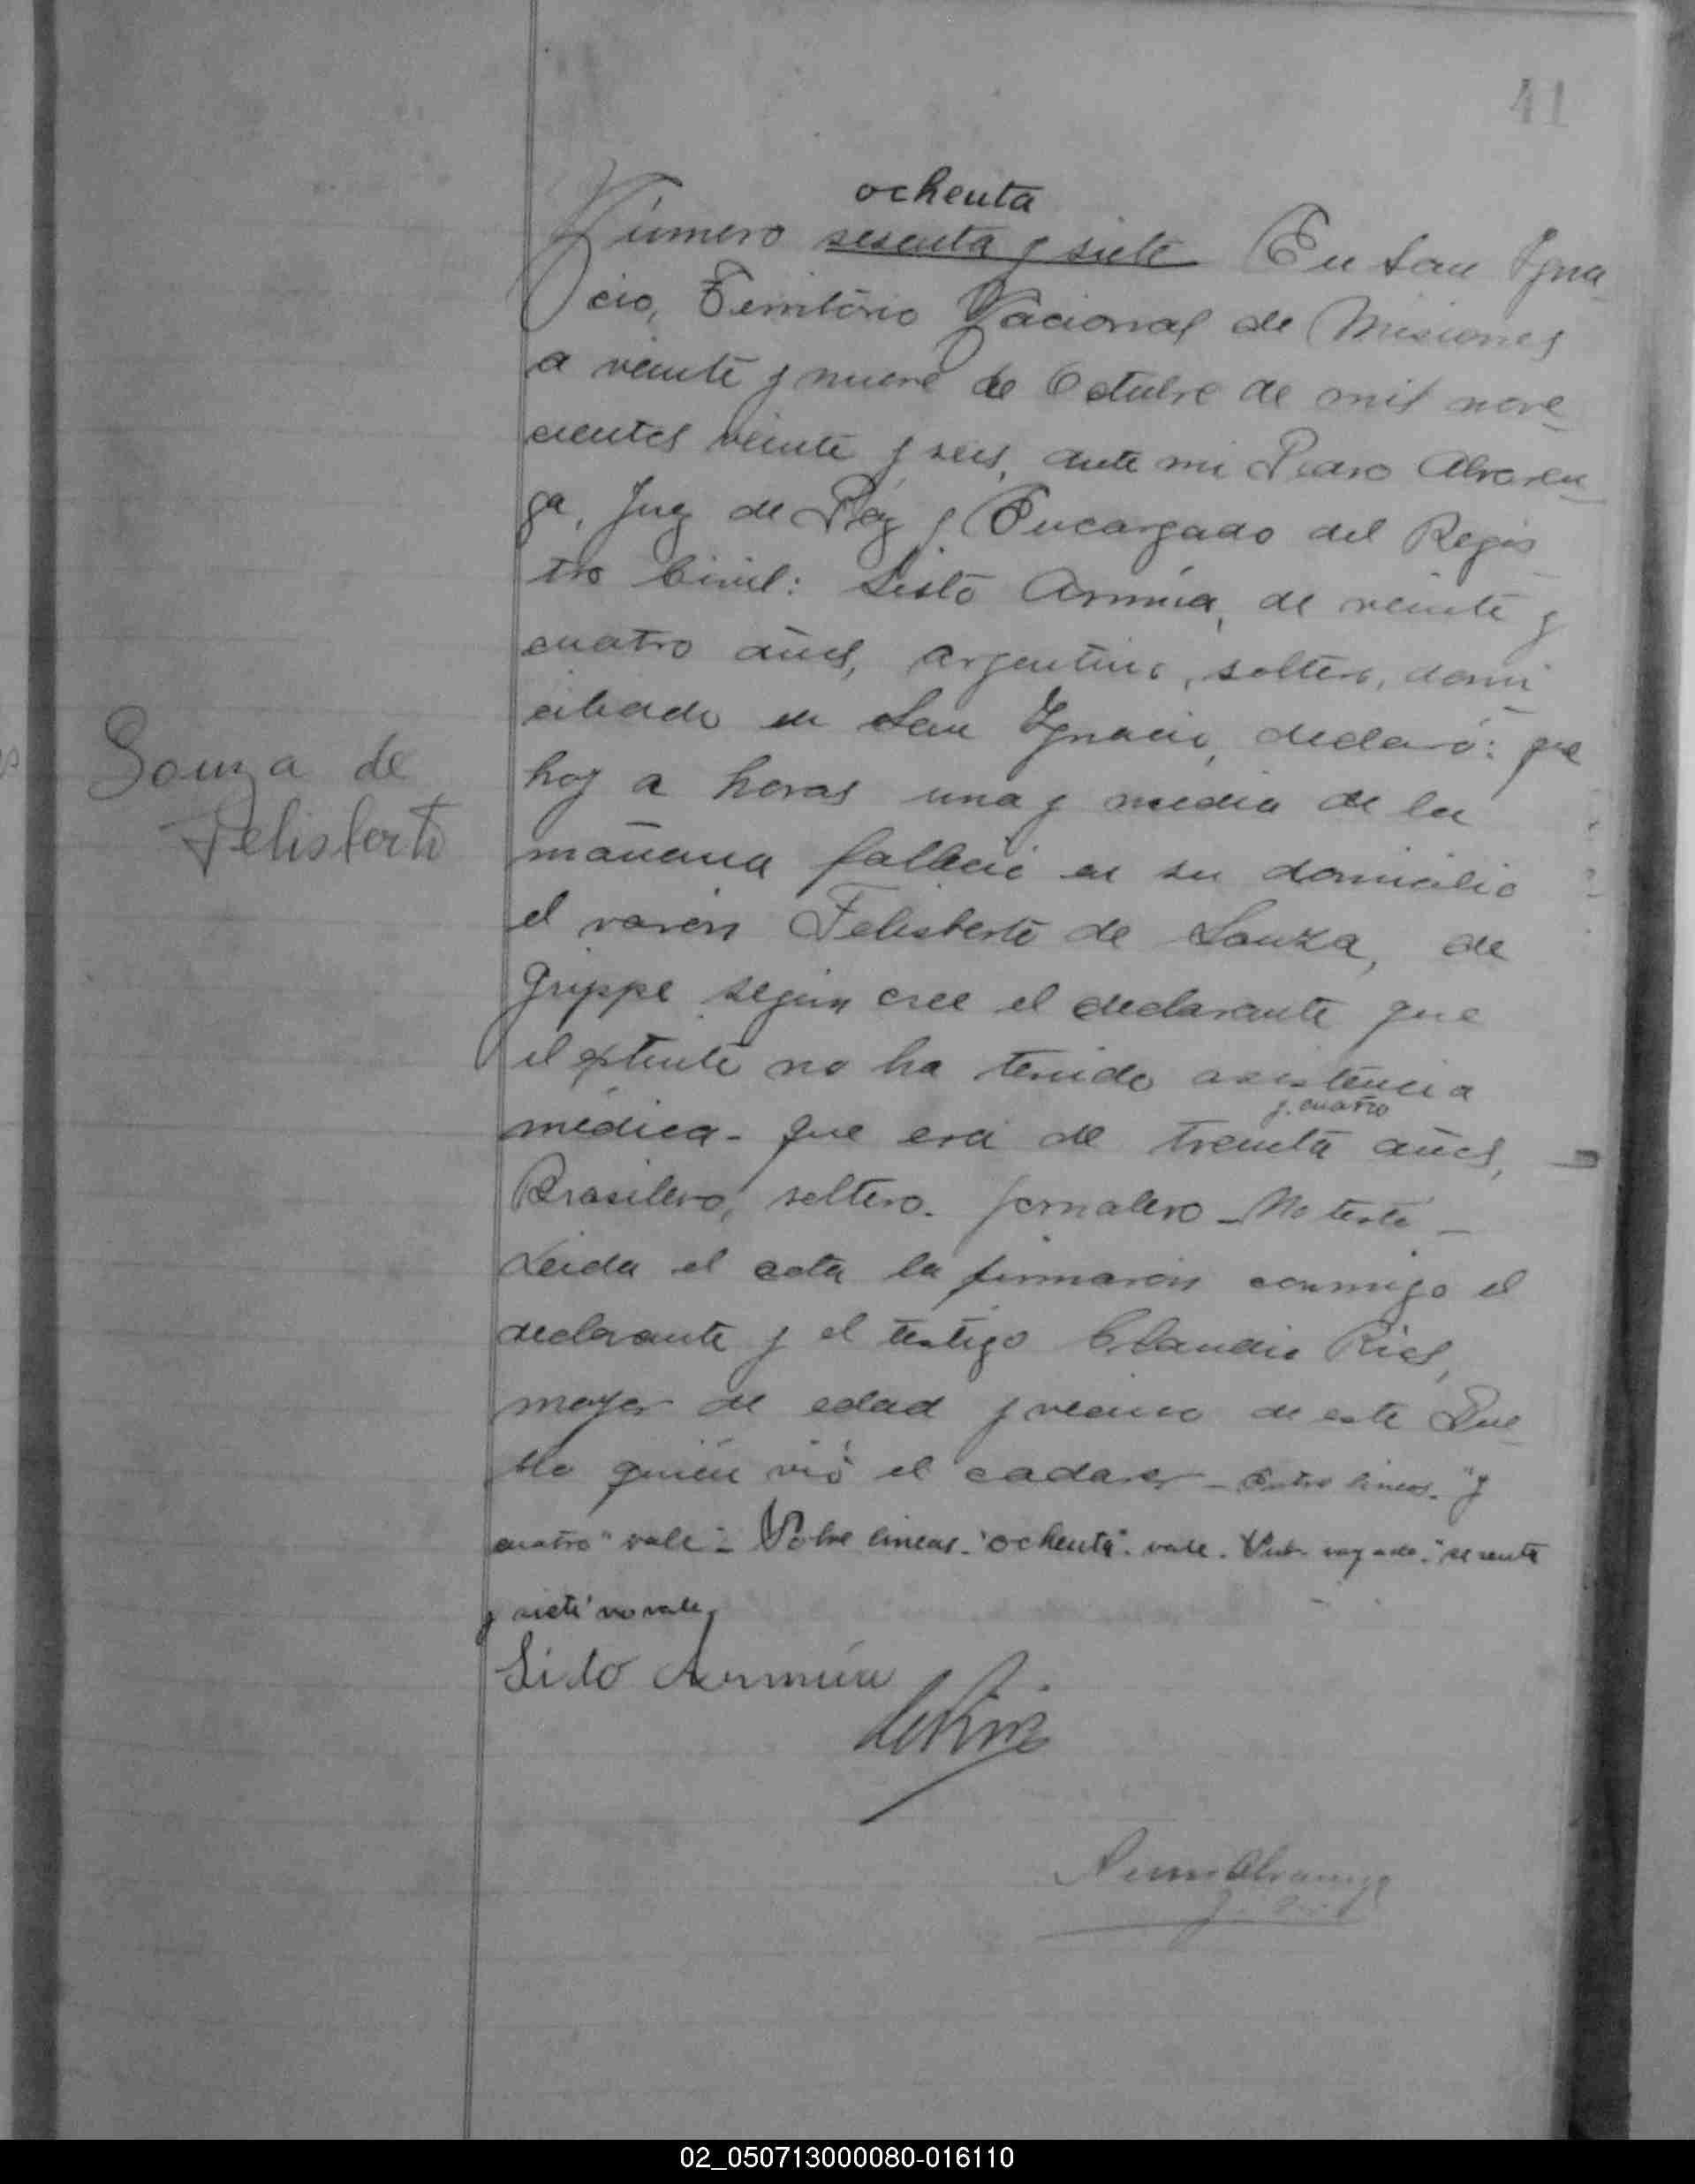 41
ochenta
Número sesenta y siete En San Igna
cio, Território Nacional de Misiones
a veinte y nueve de Octubre de mil nove
cientos veinte y seis, ante mi Pedro Alvaren
ga, Juez de Páz y Encargado del Regis
tro Civil: Sisto Armúa, de veinte y
cuatro años, argentino, soltero, domi
ciliado en San Ignacio, declaró: que
hoy a horas una y media de la
Souza de
Felisberto
mañana falleció en su domicilio
el varón Felisberto de Souza, de
Grippe según cree el declarante que
el extinto no ha tenido asistencia
y cuatro
médica - que era de treinta años,
Brasilero, soltero. jornalero - No testó -
Leida el acta la firmaron conmigo el
declarante y el testigo Claudio Rios,
mayor de edad y vecino de este Pue
blo quién vió el cadaver - Entre lineas - "y
cuatro" vale - Sobre lineas - "ochenta" - vale. "sesenta
y siete" no vale,
Sisto Armúa
02_050713000080-016110